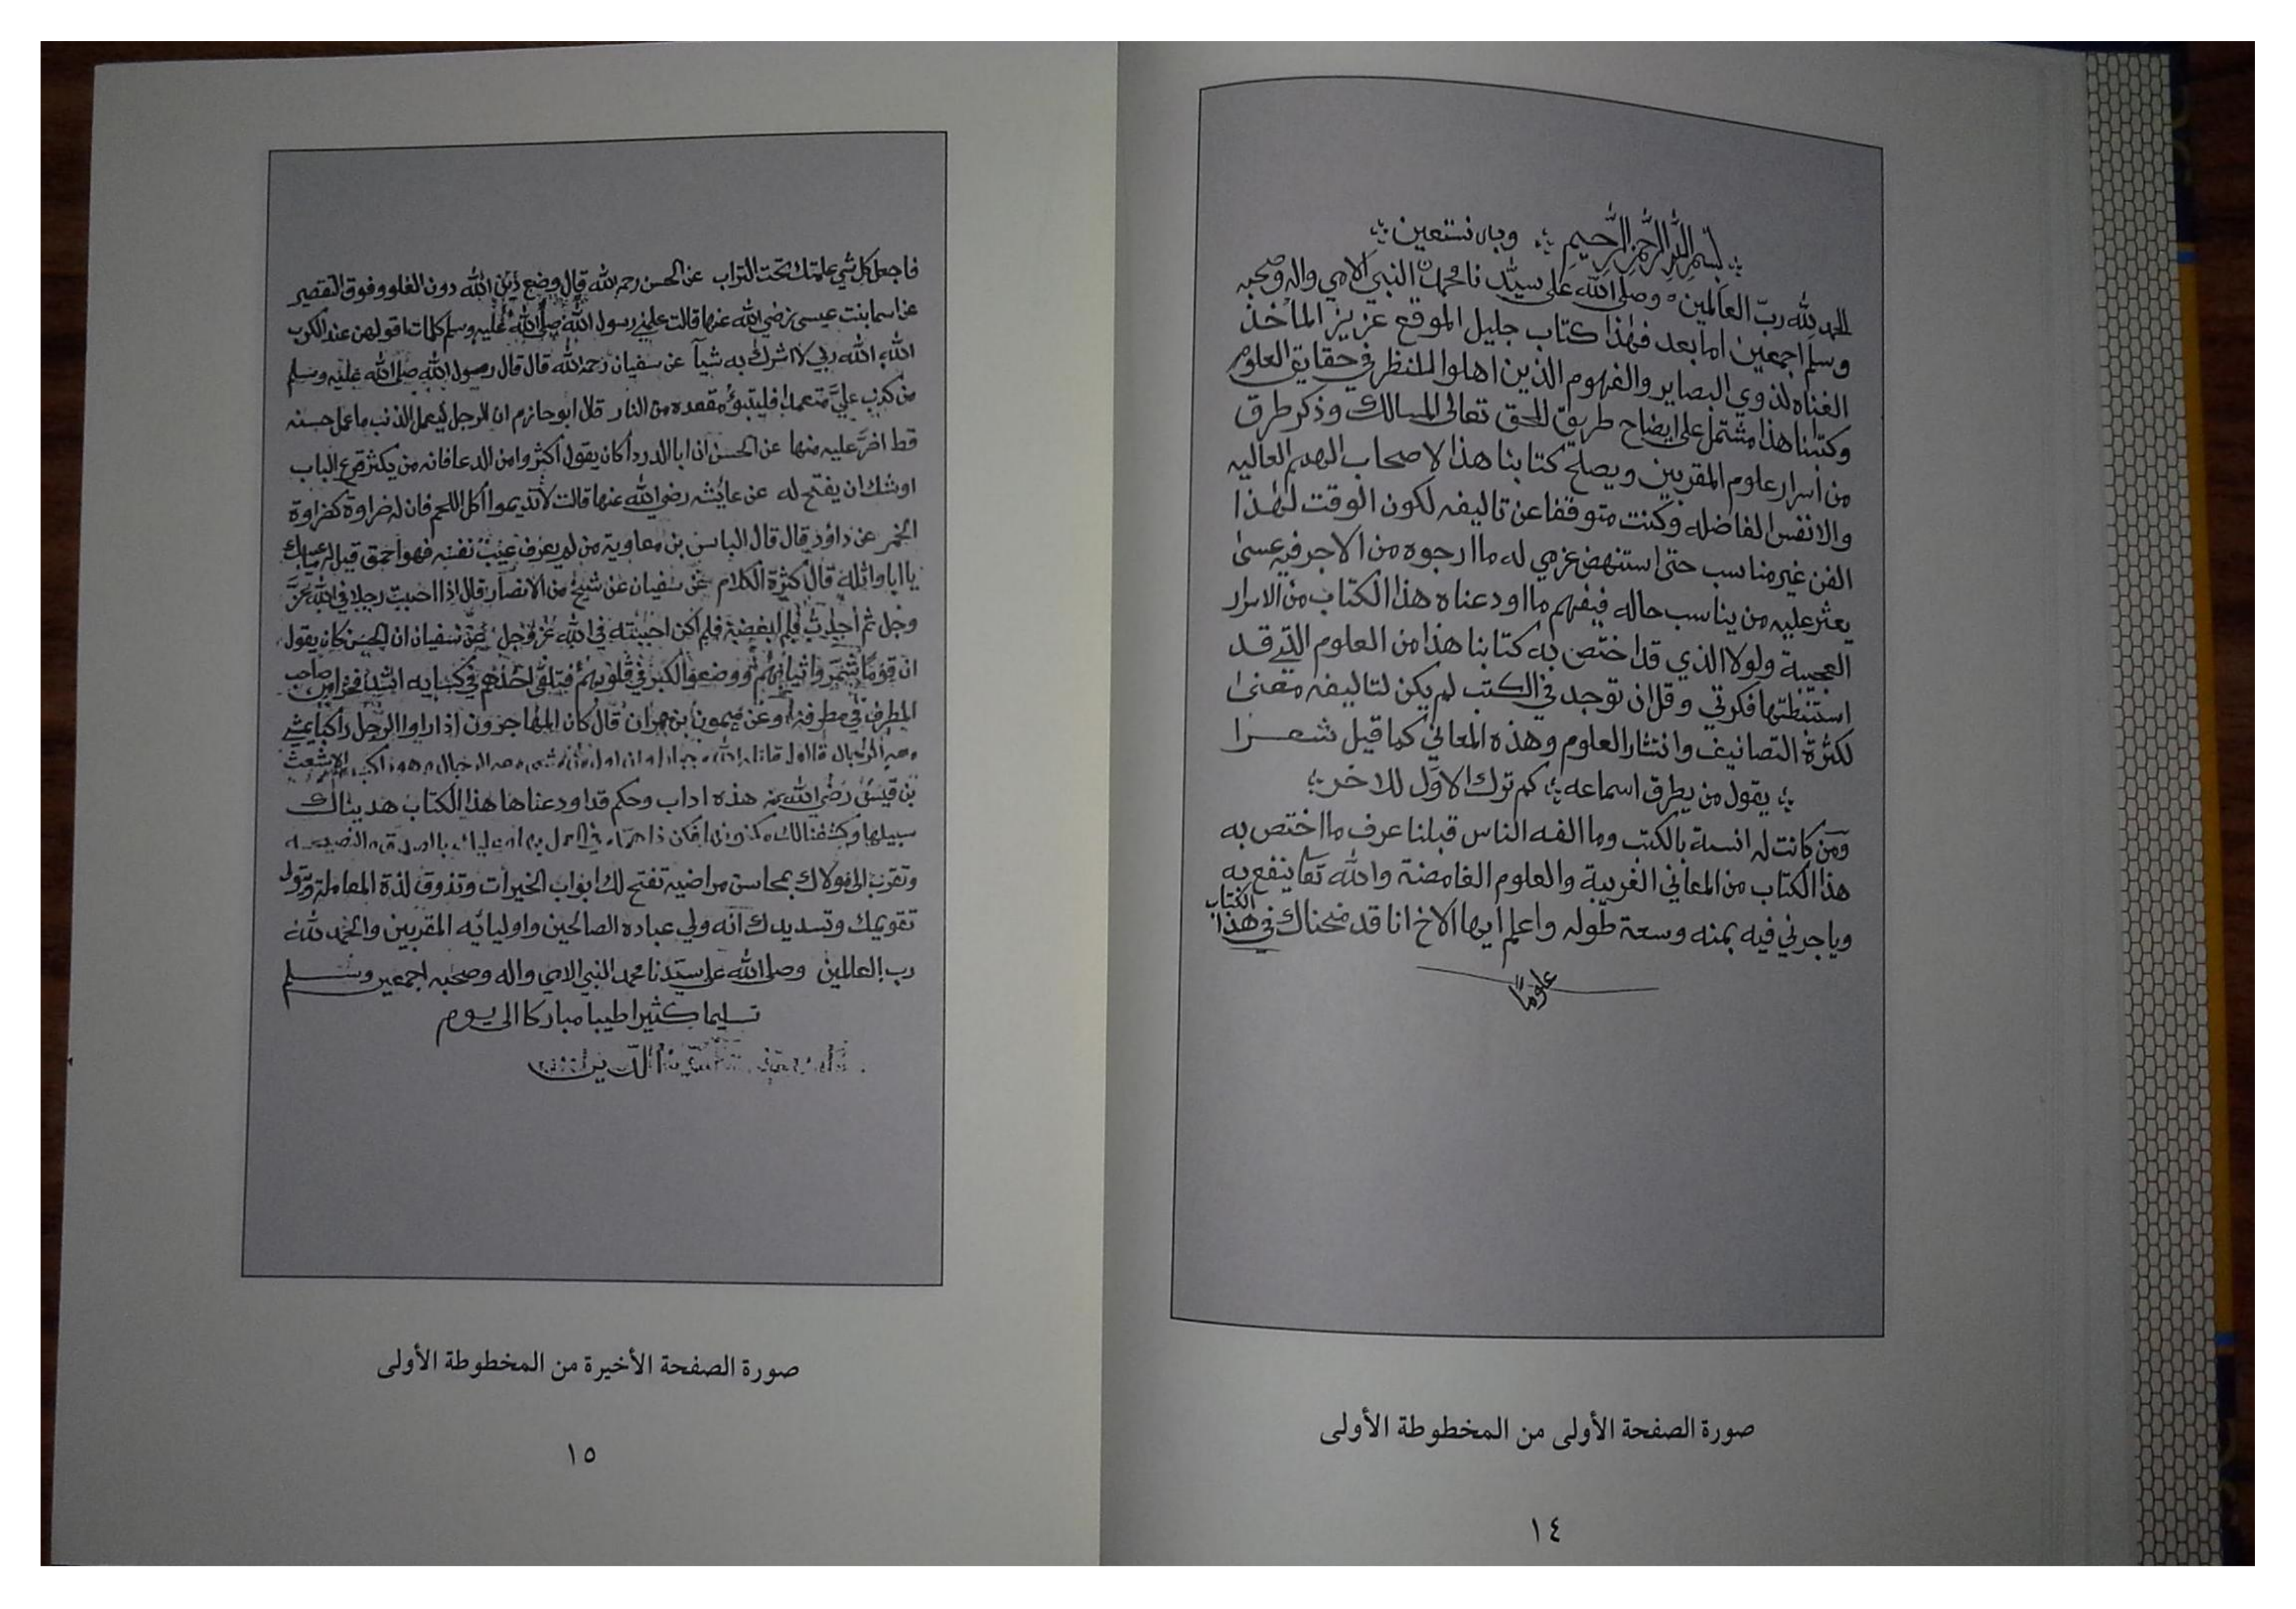 بسم الله الرحمن الرحيم وبه نستعين
الحمد لله ربّ العالمين وصلى الله على سيدنا محمد النبي الامي واله وصحبه
وسلم اجمعين اما بعد فهذا كتاب جليل الموقع عزيز المأخذ
لذوي البصاير والفهوم الذين اهلوا للنظر في حقايق العلوم
وكتابنا هذا مشتمل على ايضاح طريق الحق تعالى للسالك وذكر طرق
من اسرار علوم المقربين ويصلح كتابنا هذا لاصحاب الهمم العاليه
والانفس الفاضله وكنت متوقفا عن تاليفه لكون الوقت لهذا
الفن غير مناسب حتى استنهض عزمي له ما ارجوه من الاجر فيه عسى
يعثر عليه من يناسب حاله فيفهم ما اودعناه هذا الكتاب من الاسرار
العجيبة ولولا الذي قد اختص به كتابنا هذا من العلوم التي قد
استنبطتها فكرتي وقل ان توجد في الكتب لم يكن لتاليفه معنى
لكثرة التصانيف وانتشار العلوم وهذه المعاني كما قيل شعرا
يقول من يطرق اسماعه كم ترك الاوّل للاخر
ومن كانت له انسة بالكتب وما الفه الناس قبلنا عرف ما اختص به
هذا الكتاب من المعاني الغريبة والعلوم الغامضة والله تعا ينفع به
وياجرني فيه بمنه وسعة طوله واعلم ايها الاخ انا قد منحناك في هذا الكتاب
علومًا
صورة الصفحة الأولى من المخطوطة الأولى
١٤
فاجعل كل شي علمتك تحت التراب عن الحسن رحمه الله قال وضع دين الله دون الغلو وفوق التقصير
عن اسما بنت عيسى رضي الله عنها قالت علمني رسول الله صلى الله عليه وسلم كلمات اقولهن عند الكرب
الله الله ربي لا اشرك به شيأ عن سفيان رحمه الله قال قال رسول الله صلى الله عليه وسلم
من كذب عليّ متعمدا فليتبوّء مقعده من النار قال ابو حازم ان الرجل ليعمل الذنب ما عمل حسنه
قط اضرّ عليه منها عن الحسن ان ابا الدرداء كان يقول اكثروا من الدعا فانه من يكثر قرع الباب
اوشك ان يفتح له عن عايشه رضي الله عنها قالت لا تديموا اكل اللحم فان له ضراوة كضراوة
الخمر عن داود قال قال اياس بن معاوية من لم يعرف عيب نفسه فهو احمق قيل له ما عيبك
يا ابا واثلة قال كثرة الكلام عن سفيان عن شيخ من الانصار قال اذا احببت رجلا في الله عزّ
وجل ثم احدث فلم ابغضه فلم اكن احببته في الله عز وجل عن سفيان ان الحسن كان يقول
ان قومًا شمروا ثيابهم ووضعوا الكبر في قلوبهم فتلقى احدهم في كسايه اشد فخرا من صاحب
المطرف في مطرفه وعن ميمون بن مهران قال كان المهاجرون اذا راوا الرجل راكبا يمشي
معه الرجال قالوا قاتله الله جبارا وان اول من مشى معه الرجال وهو راكب الاشعث
بن قيس رضي الله عنه هذه اداب وحكم قد اودعناها هذا الكتاب هديناك
سبيلها وكشفنا لك مكنونها فكن ذا حزم في العمل بها وعليك بالصدق والنصيحه
وتقرب الى مولاك بمحاسن مراضيه تفتح لك ابواب الخيرات وتذوق لذة المعاملة وتولى
تقويمك وتسديدك انه ولي عباده الصالحين واوليائه المقربين والحمد لله
رب العالمين وصلى الله على سيدنا محمد النبي الامي واله وصحبه اجمعين وسلم
تسليما كثيرا طيبا مباركا الى يوم
الدين
صورة الصفحة الأخيرة من المخطوطة الأولى
١٥